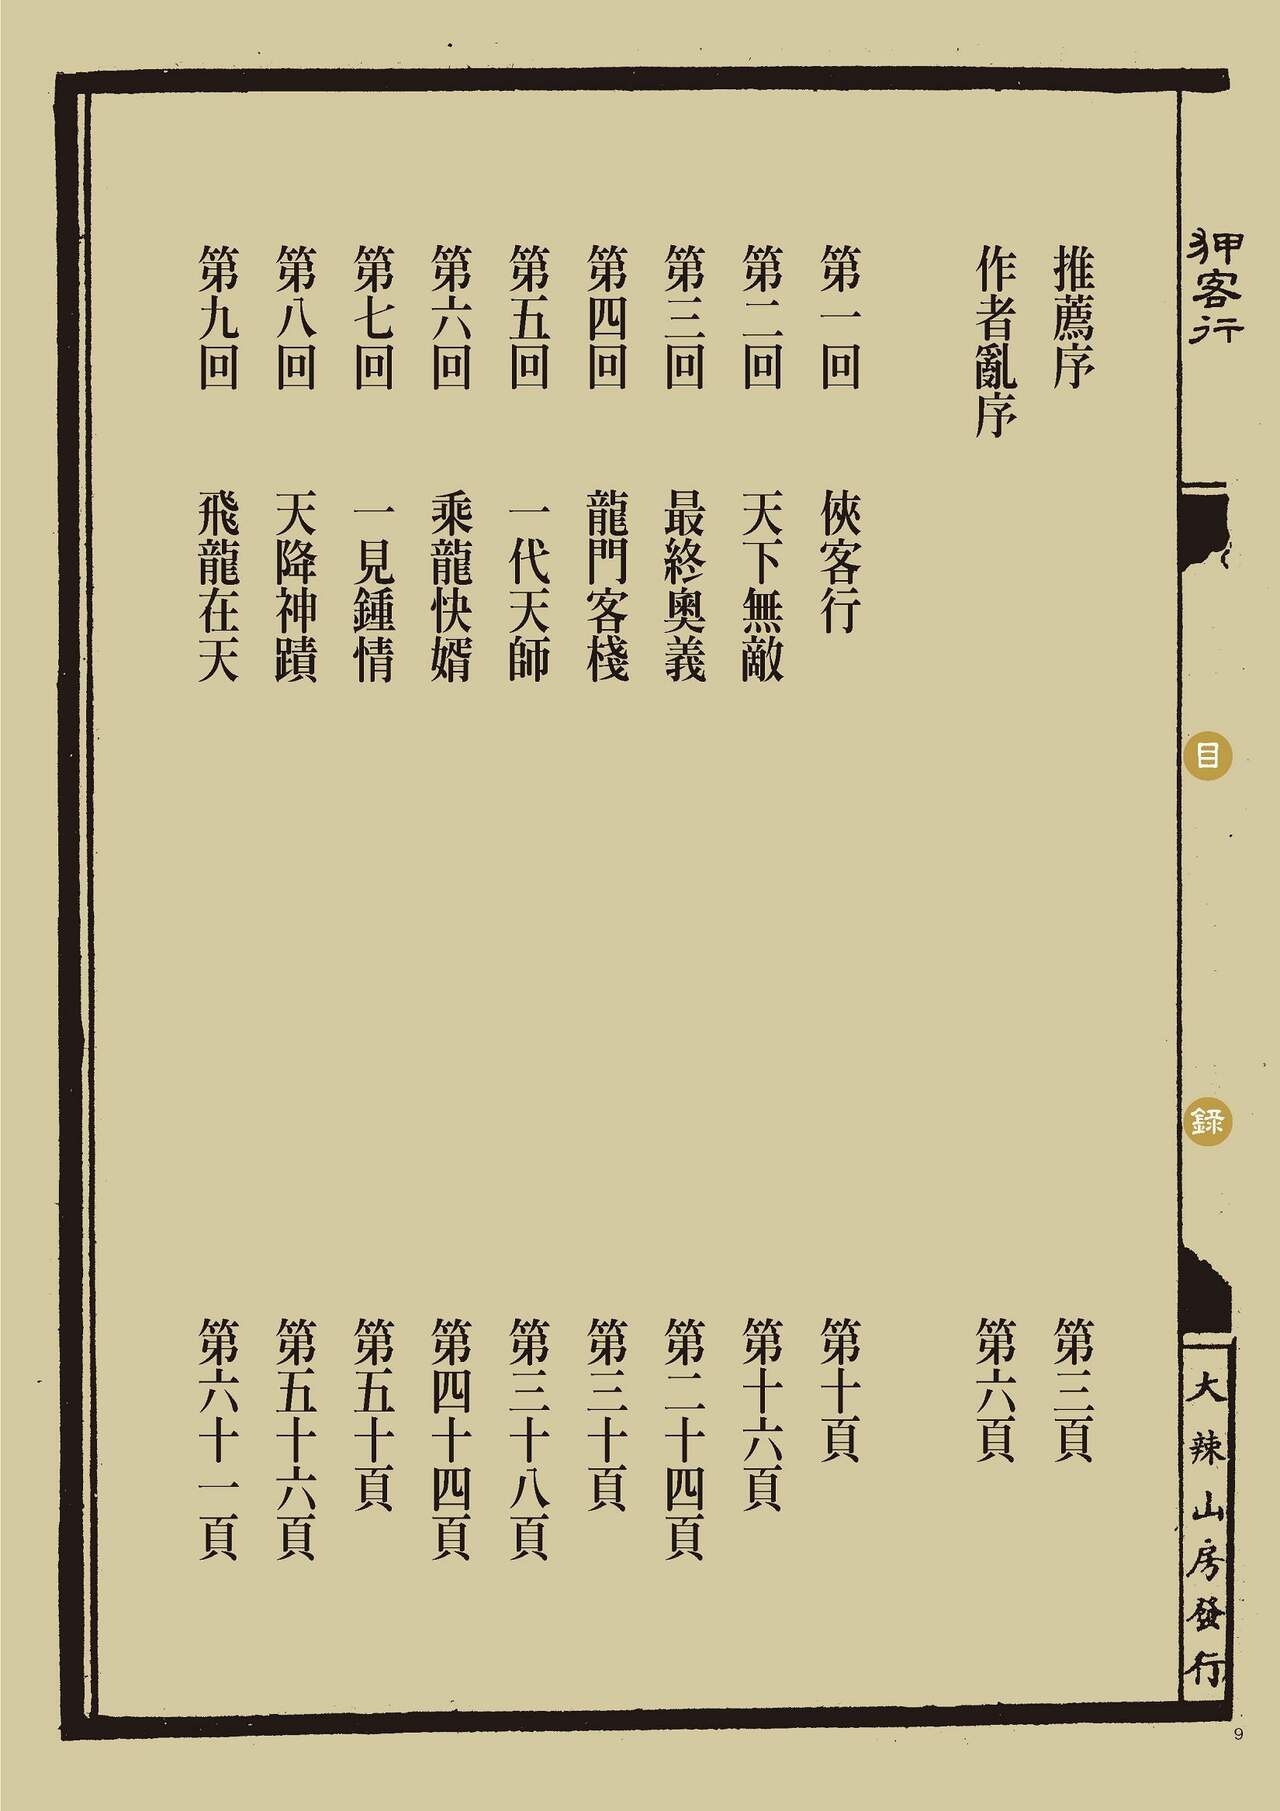 狎客行
目
錄
大辣山房發行
推薦序 第三頁
作者亂序 第六頁
第一回 俠客行 第十頁
第二回 天下無敵 第十六頁
第三回 最終奧義 第二十四頁
第四回 龍門客棧 第三十頁
第五回 一代天師 第三十八頁
第六回 乘龍快婿 第四十四頁
第七回 一見鍾情 第五十頁
第八回 天降神蹟 第五十六頁
第九回 飛龍在天 第六十一頁
9